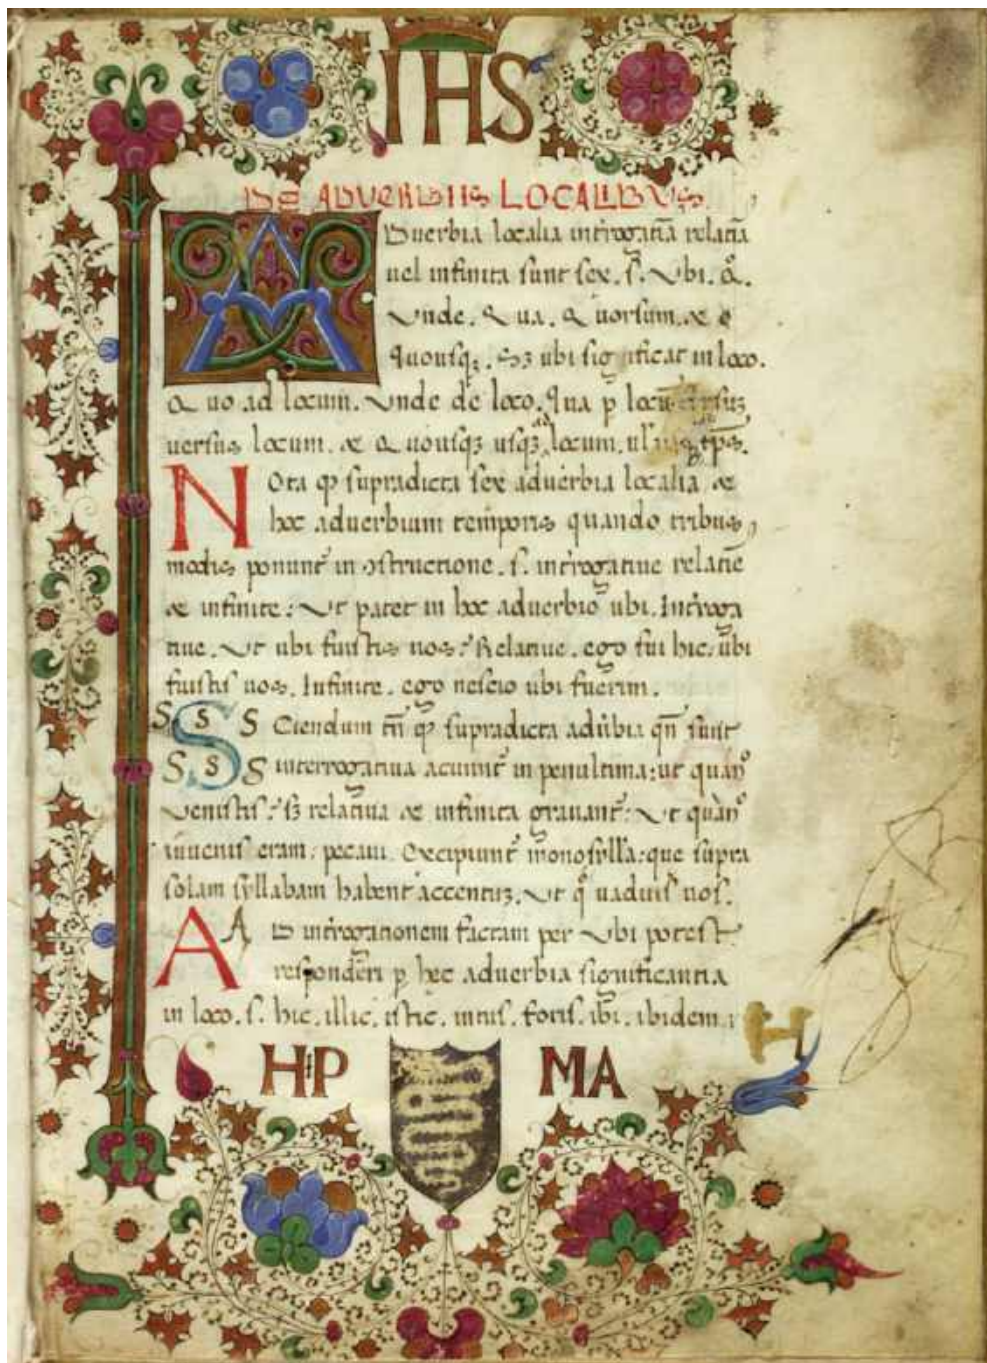 IHS
DE ADVERBIIS LOCALIBVS
ADuerbia localia intrrogatiā relatiā
uel infinita sunt sex. s. Vbi. Qͦ.
Vnde. Qua. Quorsum. &
quousqꝫ. Sꝫ ubi significat in loco.
Quo ad locum. Vnde de loco. Qua ꝑ locū
uersus locum. & Quousqꝫ usqꝫ ad locum. ul'
NOta ꝙ supradicta sex aduerbia localia &
hoc aduerbium temporis quando tribus
modis ponunt᷑ in ꝯstructione. s. intrrogatiue relatīe
& infinite: Vt patet in hoc aduerbio ubi. Intrroga
tiue. Vt ubi fuistis uos? Relatiue. ego fui hic: ubi
fuistis uos. Infinite. ego nescio ubi fuerim.
S S S S
S S S Ciendum tn̄ ꝙ supradicta adūbia qn̄ sunt
interrogatiua acuunt᷑ in penultima: ut quanͦ
Venistis? sꝫ relatiua & infinita grauant᷑: Vt quànͦ
iuuenis eram: peccaui. Excipiunt᷑ monosyll'a: que supra
solam syllabam habent accentuꝫ. Vt qͦ uaditis uos.
A AD intrrogationem factam per Vbi potest
responderi ꝑ hec aduerbia significantia
in loco. s. hic. illic. istic. intus. foris. ibi. ibidem.
HIP MA